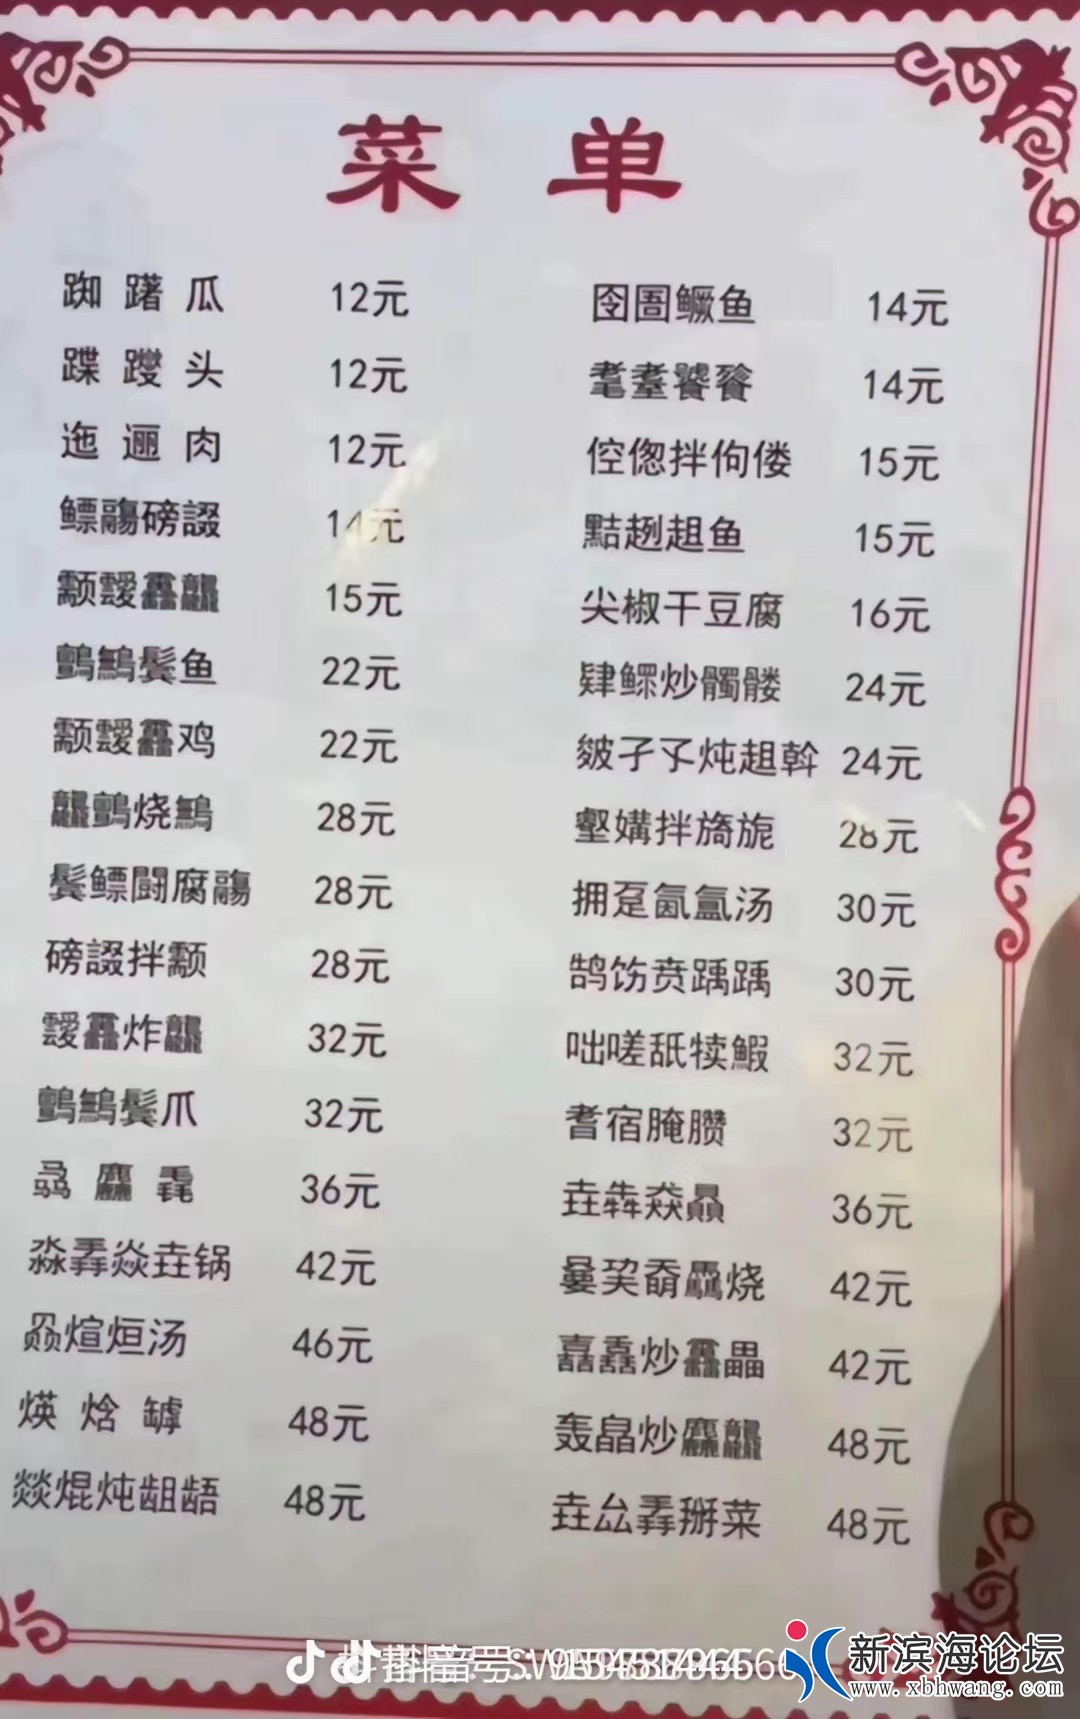 菜单
踟躇瓜 12元
蹀躞头 12元
迤逦肉 12元
鳔 磅 14元
颥 靐龘 15元
鱼 22元
颥 靐鸡 22元
龘 烧 28元
鬓鳔 腐 28元
磅 拌颥 28元
靐炸龘 32元
鬓爪 32元
骉麤毳 36元
淼掱焱垚锅 42元
赑煊烜汤 46元
煐焓罅 48元
燚焜炖龃龉 48元
囹圄鳜鱼 14元
耄耋饕餮 14元
倥偬拌佝偻 15元
黠趔趄鱼 15元
尖椒干豆腐 16元
肄鳏炒髑髅 24元
皴孑孓炖趄斡 24元
壑媾拌旖旎 28元
拥趸氤氲汤 30元
鹄饬贲踽踽 30元
咄嗟舐犊鰕 32元
耆宿腌臜 32元
垚犇猋贔 36元
烧 42元
嚞驫炒靐畾 42元
轰皛炒麤龘 48元
垚厽掱掰菜 48元
新滨海论坛
www.xbhwang.com